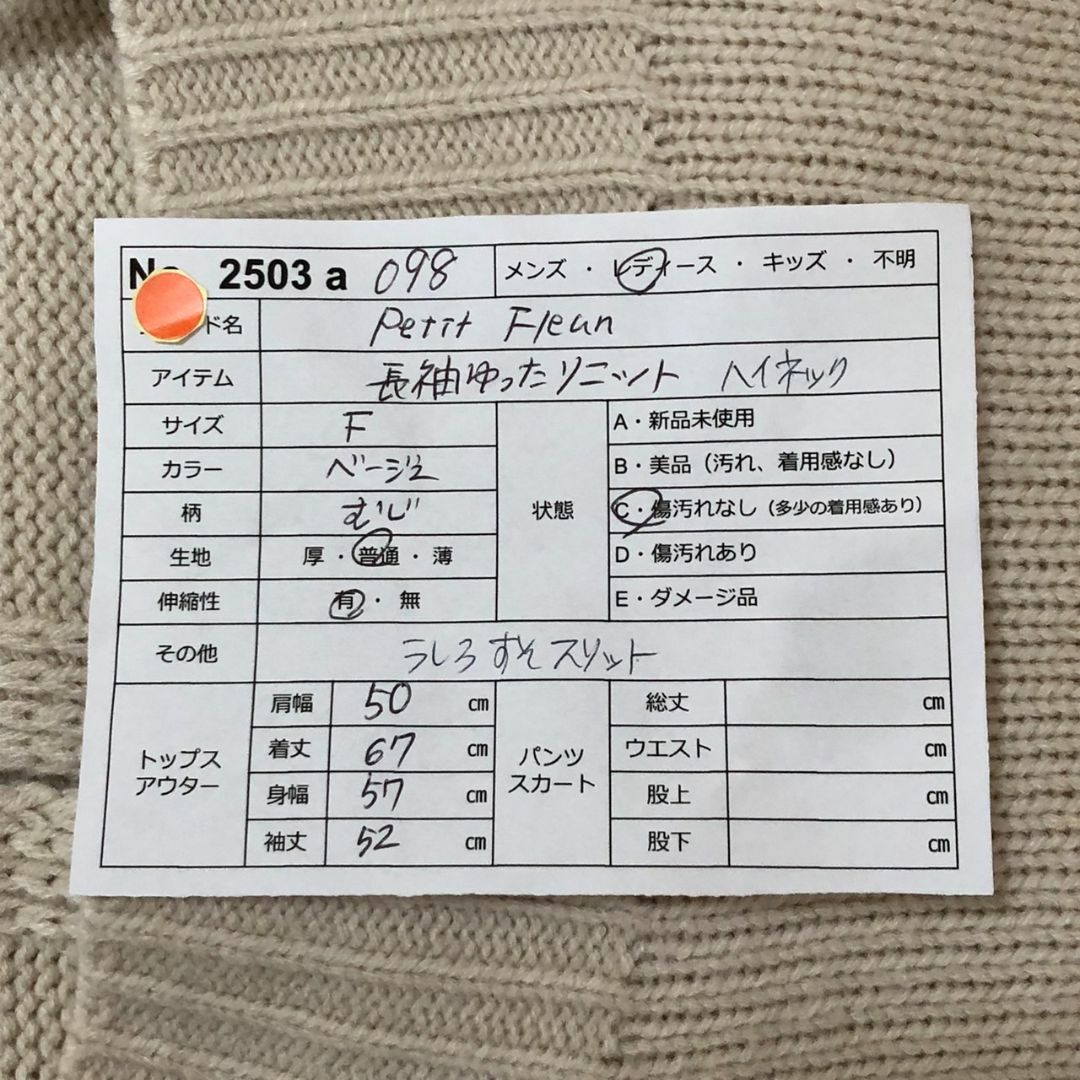 No. 2503 a 098 メンズ ・ レディース ・ キッズ ・ 不明
ド名 Petit Fleur
アイテム 長袖ゆったりニット ハイネック
サイズ F
カラー ベージュ
柄 むじ
生地 厚 ・ 普通 ・ 薄
伸縮性 有 ・ 無
状態
A・新品未使用
B・美品（汚れ、着用感なし）
C・傷汚れなし（多少の着用感あり）
D・傷汚れあり
E・ダメージ品
その他 うしろすそスリット
トップス
アウター
肩幅 50 cm
着丈 67 cm
身幅 57 cm
袖丈 52 cm
パンツ
スカート
総丈 cm
ウエスト cm
股上 cm
股下 cm